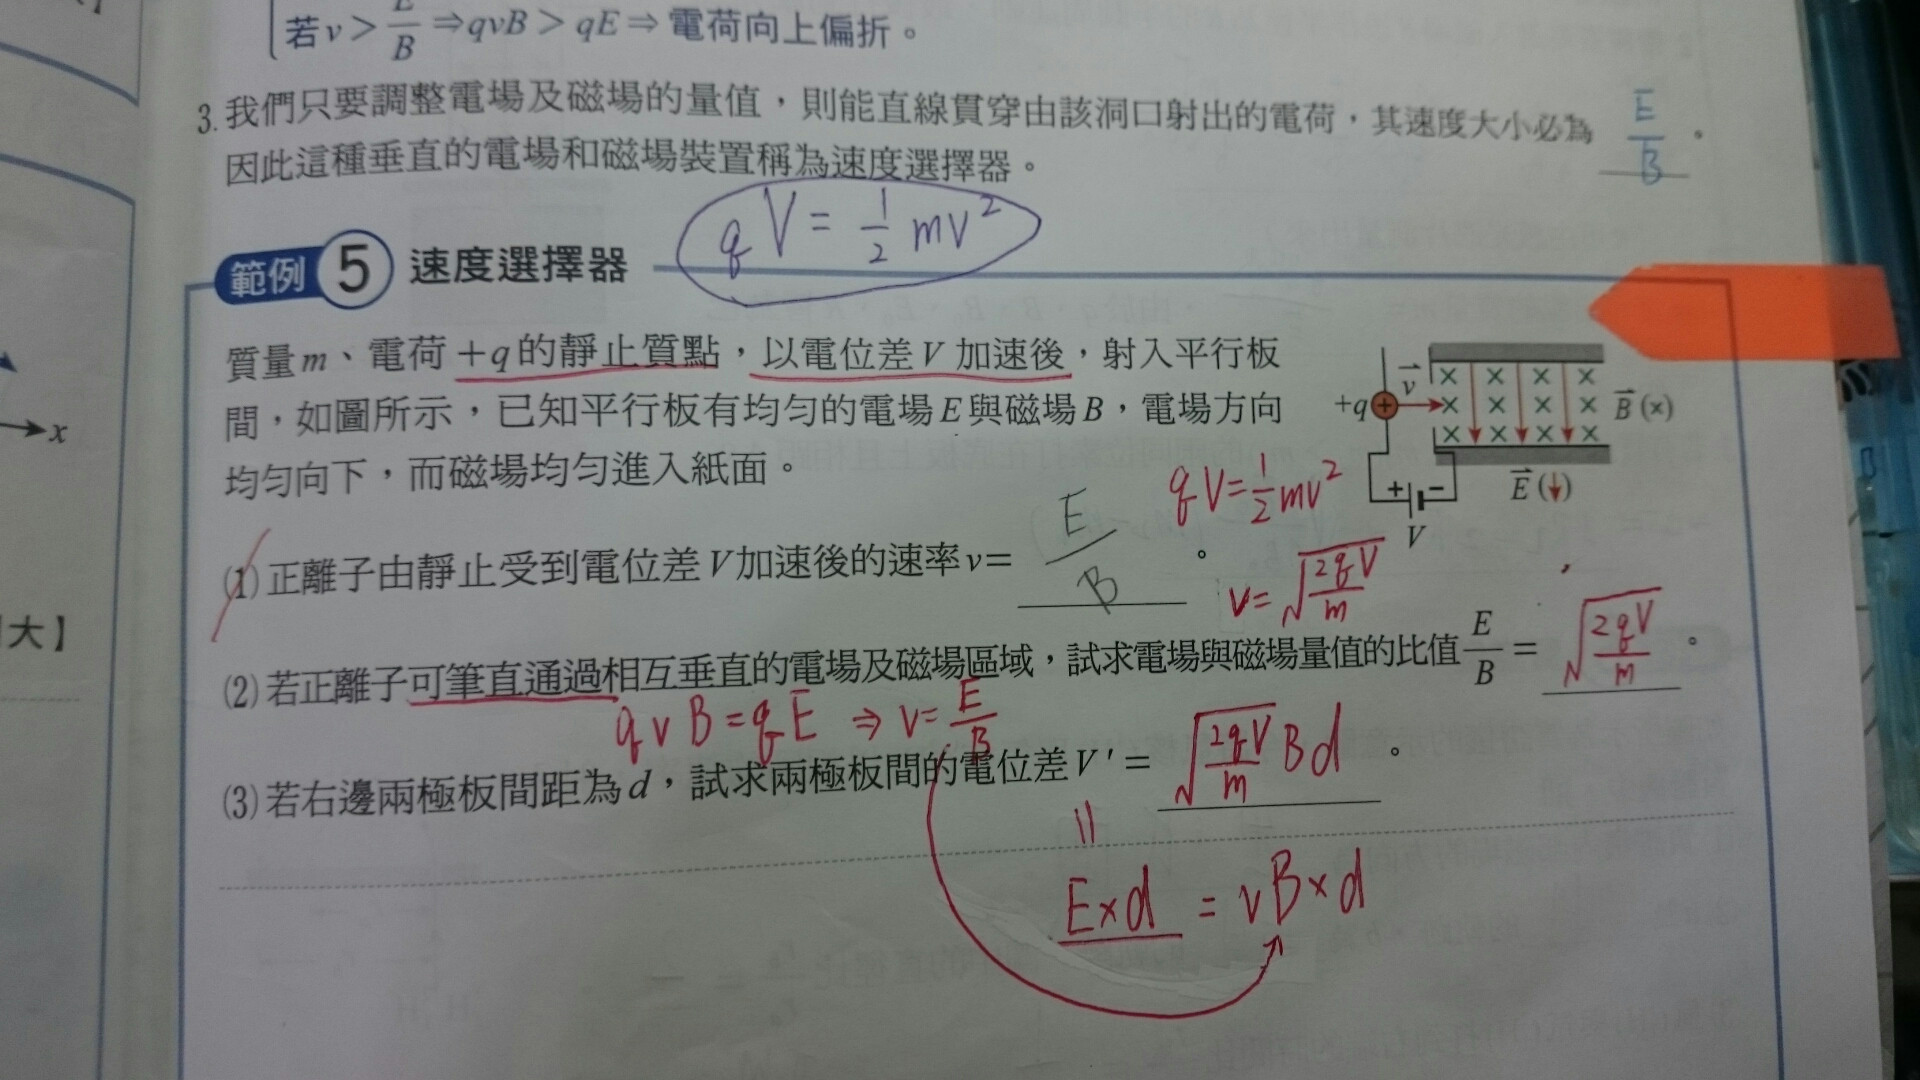 若v > E/B ⇒ qvB > qE ⇒ 電荷向上偏折。
3. 我們只要調整電場及磁場的量值，則能直線貫穿由該洞口射出的電荷，其速度大小必為 E/B 。
因此這種垂直的電場和磁場裝置稱為速度選擇器。
qV = 1/2 mv²
範例 5 速度選擇器
質量m、電荷+q的靜止質點，以電位差V加速後，射入平行板
間，如圖所示，已知平行板有均勻的電場E與磁場B，電場方向
均勻向下，而磁場均勻進入紙面。
+q + v
× × × ×
× × × × B (×)
× × × ×
E (↓)
+ −
V
qV = 1/2 mv²
(1) 正離子由靜止受到電位差V加速後的速率v = E/B 。
v = √(2qV/m)
(2) 若正離子可筆直通過相互垂直的電場及磁場區域，試求電場與磁場量值的比值 E/B = √(2qV/m) 。
qvB = qE ⇒ v = E/B
(3) 若右邊兩極板間距為d，試求兩極板間的電位差V' = √(2qV/m) Bd 。
=
E×d = vB×d
x
大】